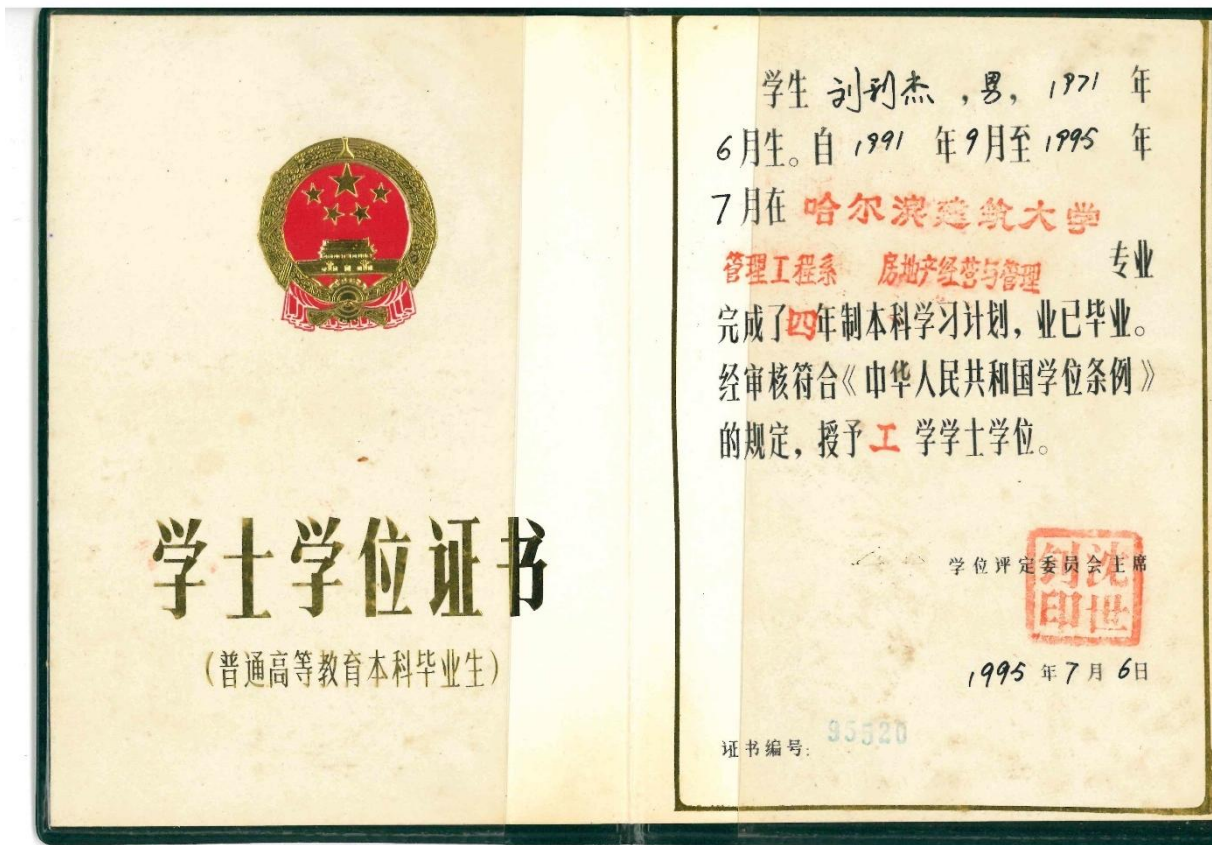 学士学位证书
(普通高等教育本科毕业生)
学生 刘利杰 ,男, 1971 年
6月生。自 1991 年9月至1995 年
7月在 哈尔滨建筑大学
管理工程系 房地产经营与管理 专业
完成了四年制本科学习计划，业已毕业。
经审核符合《中华人民共和国学位条例》
的规定，授予 工 学学士学位。
学位评定委员会主席
沈世钊印
1995 年 7 月 6日
证书编号: 95520